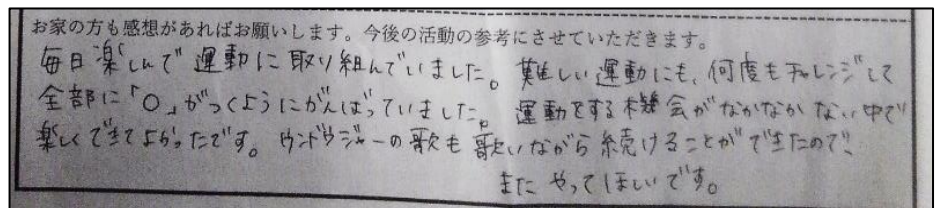 お家の方も感想があればお願いします。今後の活動の参考にさせていただきます。
毎日楽しんで運動に取り組んでいました。難しい運動にも、何度もチャレンジして
全部に「○」がつくようにがんばっていました。運動をする機会がなかなかない中で
楽しくできてよかったです。ウンドウジャーの歌も歌いながら続けることができたので、
またやってほしいです。